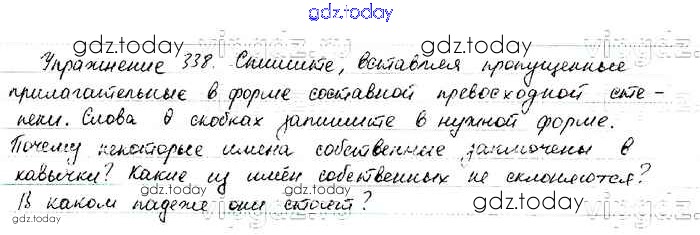 gdz.today
gdz.today gdz.today
Упражнение 338. Спишите, вставляя пропущенные
прилагательные в форме составной превосходной сте-
пени. Слова в скобках запишите в нужной форме.
gdz.today gdz.today
Почему некоторые имена собственные заключены в
кавычки? Какие из имён собственных не склоняются?
gdz.today gdz.today
В каком падеже они стоят?
gdz.today